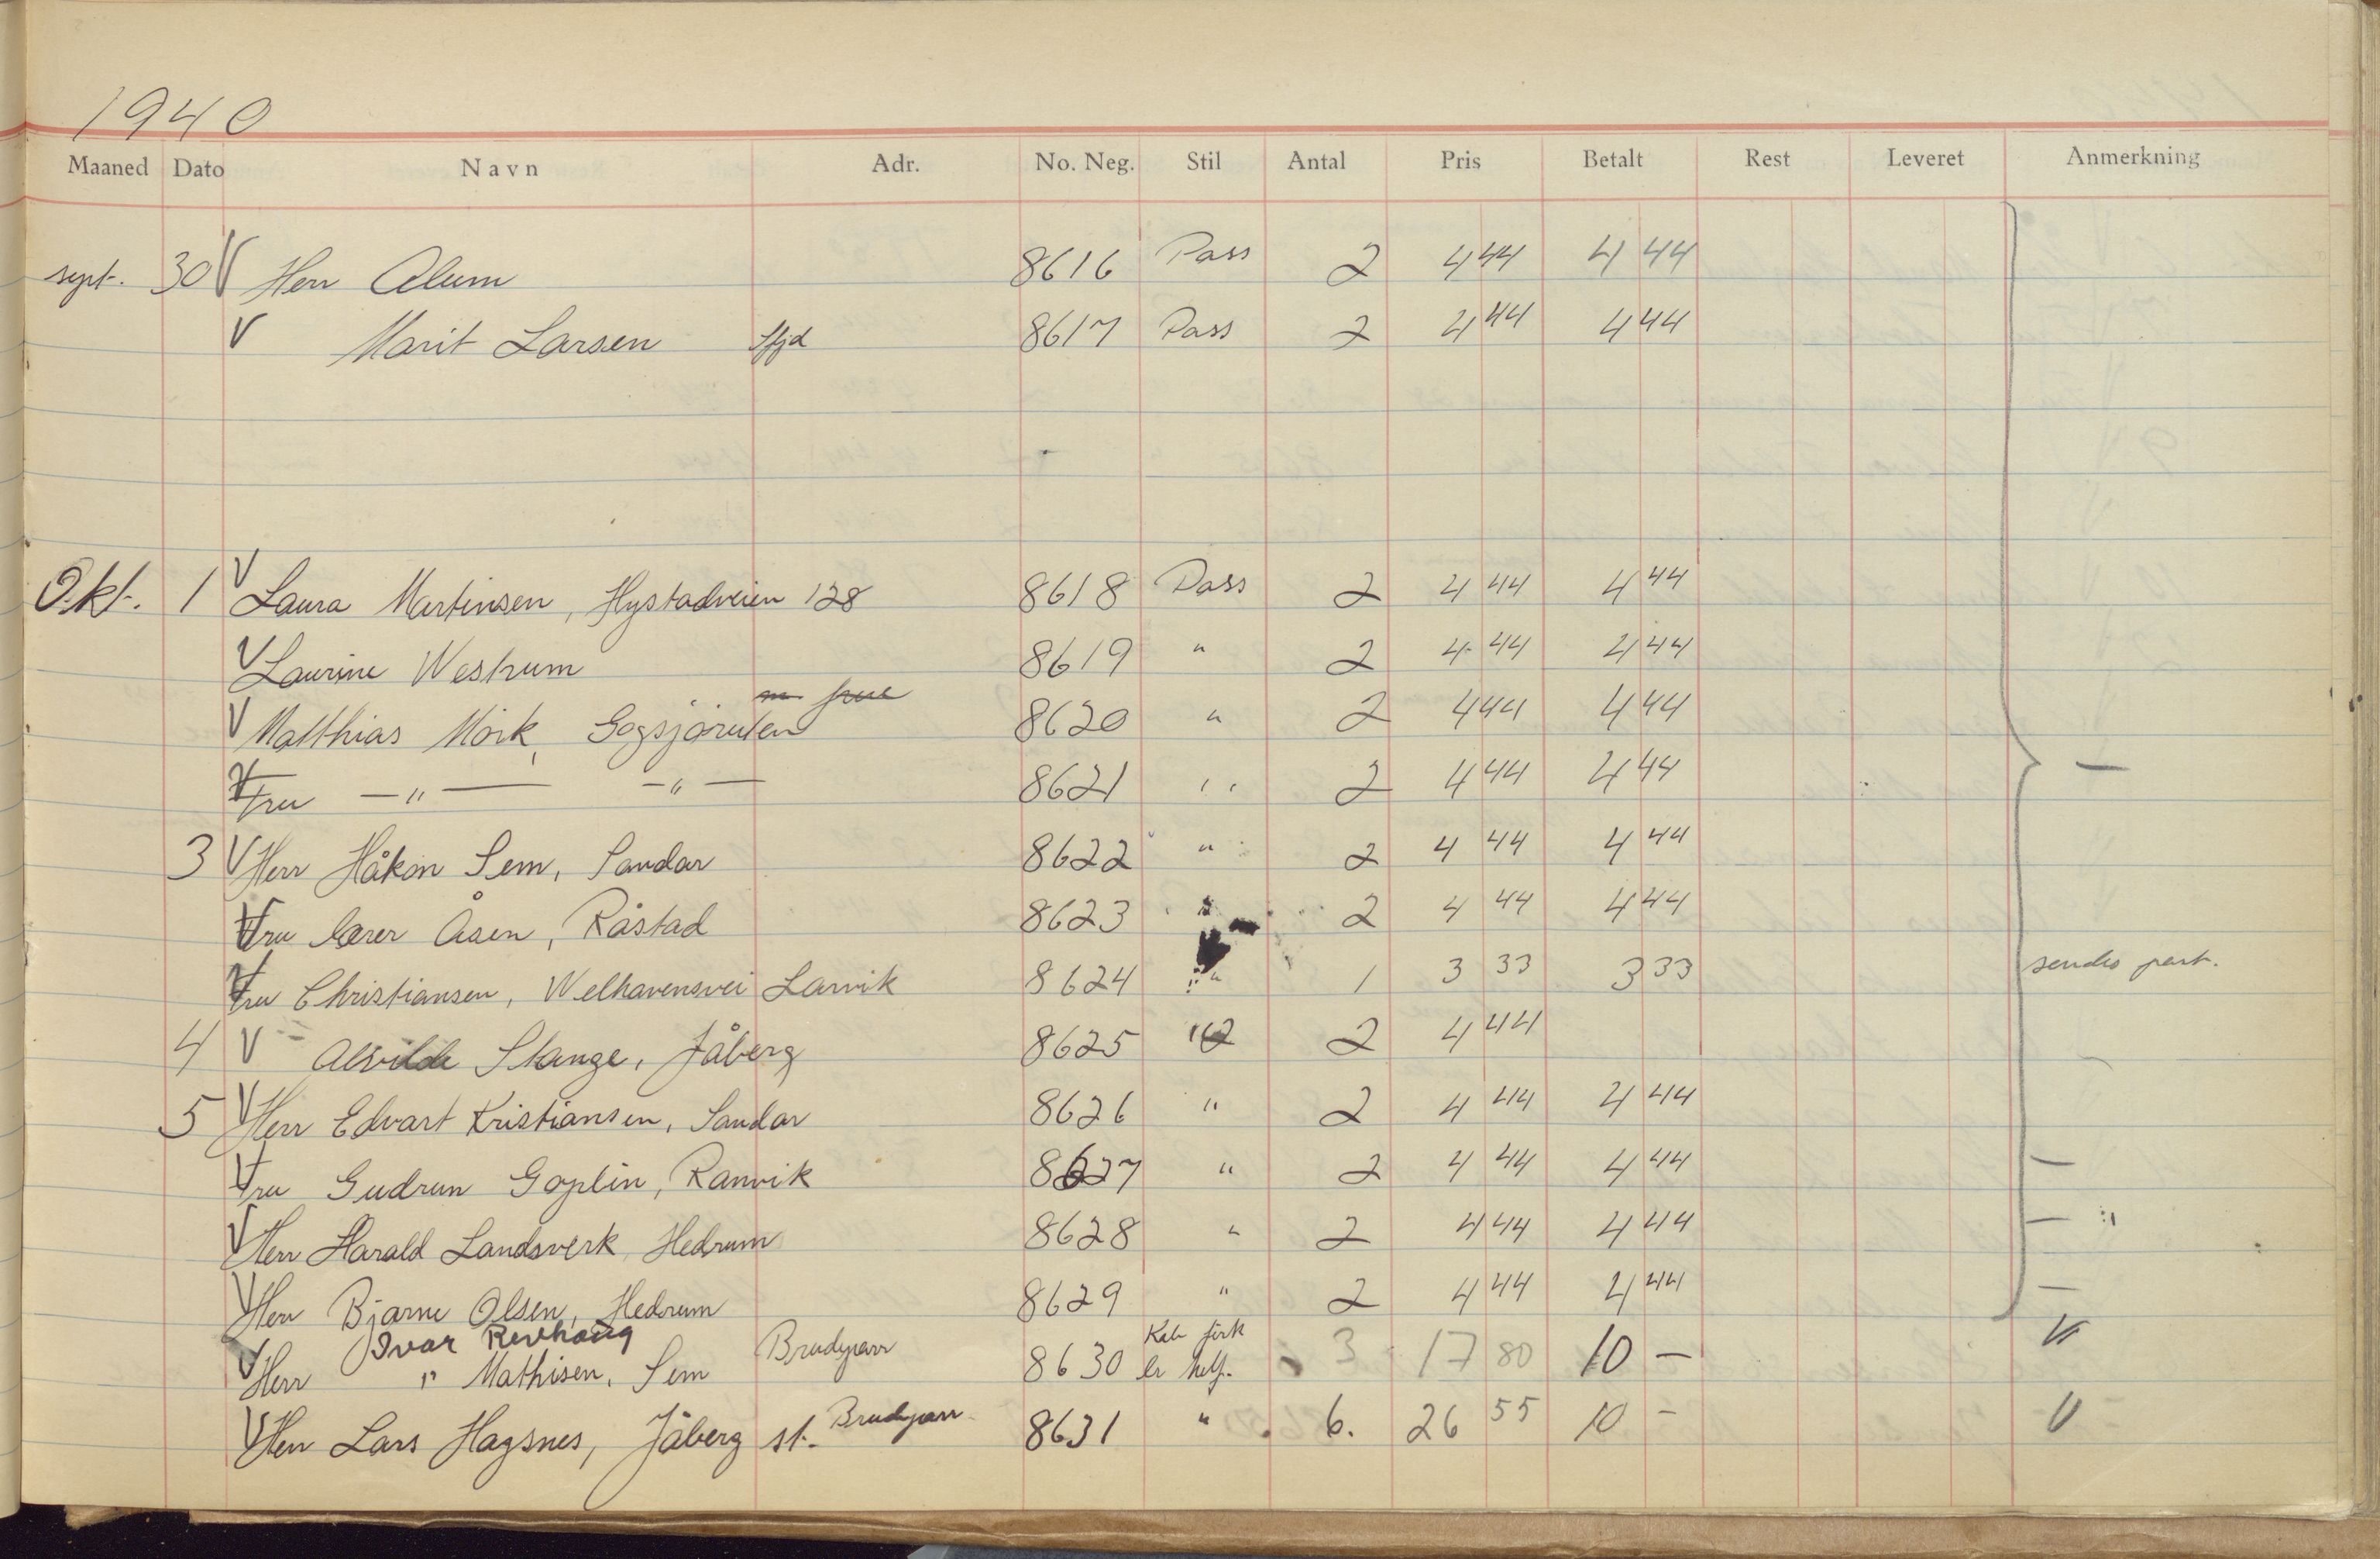 1940
Maaned Dato Navn Adr. No. Neg. Stil Antal Pris Betalt Rest Leveret Anmerkning
sept. 30 V Herr Alum 8616 Pass 2 4 44 4 44
V Marit Larsen Sfjd 8617 Pass 2 4 44 4 44
Okt. 1 V Laura Martinsen, Hystadveien 128 8618 Pass 2 4 44 4 44
V Laurine Westrum 8619 " 2 4 44 4 44
m frue
V Matthias Mörk, Gogsjøruten 8620 " 2 4 44 4 44
V Fru — " — — " — 8621 " 2 4 44 4 44 —
3 V Herr Håkon Sem, Sandar 8622 " 2 4 44 4 44
V Fru lærer Åsen, Råstad 8623 " 2 4 44 4 44
V Fru Christiansen, Welhavensvei Larvik 8624 " 1 3 33 3 33 sendes
4 V Alvilde Stange, Jåberg 8625 " 2 4 44
5 V Herr Edvart Kristiansen, Sandar 8626 " 2 4 44 4 44
V Fru Gudrun Goplin, Ranvik 8627 " 2 4 44 4 44 —
V Herr Harald Landsverk, Hedrum 8628 " 2 4 44 4 44 —
V Herr Bjarne Olsen, Hedrum 8629 " 2 4 44 4 44 —
Ivar Revhaug Kab
V Herr " Mathisen, Sem Brudepar 8630 3 17 80 10 — V
V Herr Lars Hagsnes, Jåberg st. Brudepar 8631 " 6. 26 55 10 — V